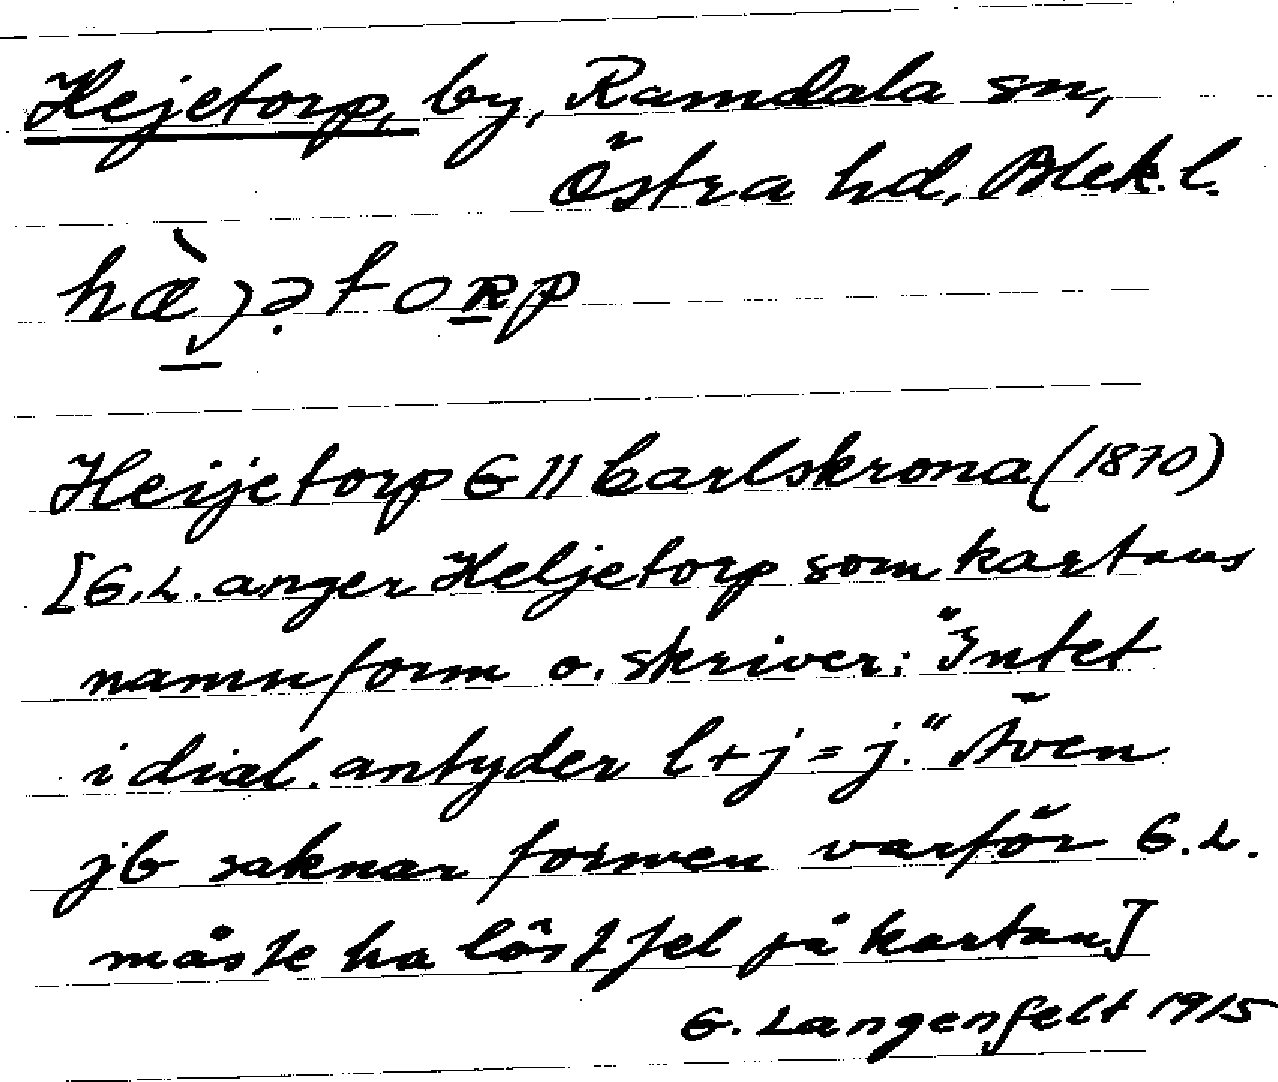 Hejetorp, by, Ramdala sn,
Östra hd, Blek. l.
hæ̀jətoRp
Heijetorp G 11 Carlskrona (1870)
[G.L. anger Heljetorp som kartans
namnform o. skriver: "Intet
i dial. antyder l+j=j." Även
jb saknar formen varför G.L.
måste ha läst fel på kartan]
G. Langenfelt 1915